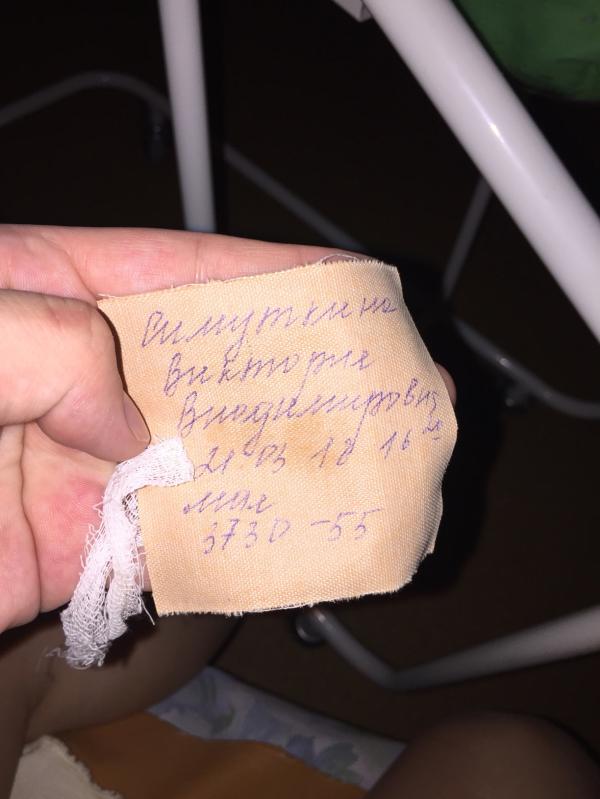 Симуткина
Виктория
Владимировна
21 03 18 16 20
мал
3730 - 55